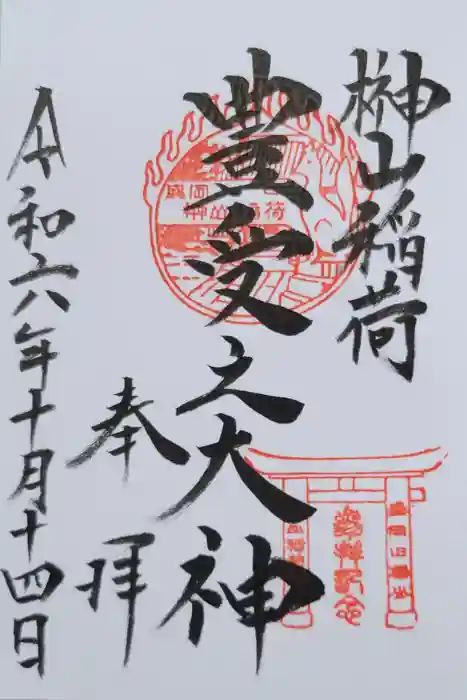 榊山稲荷
豊受之大神
奉拝
令和六年十月十四日
盛岡
榊山稲荷
参拝記念